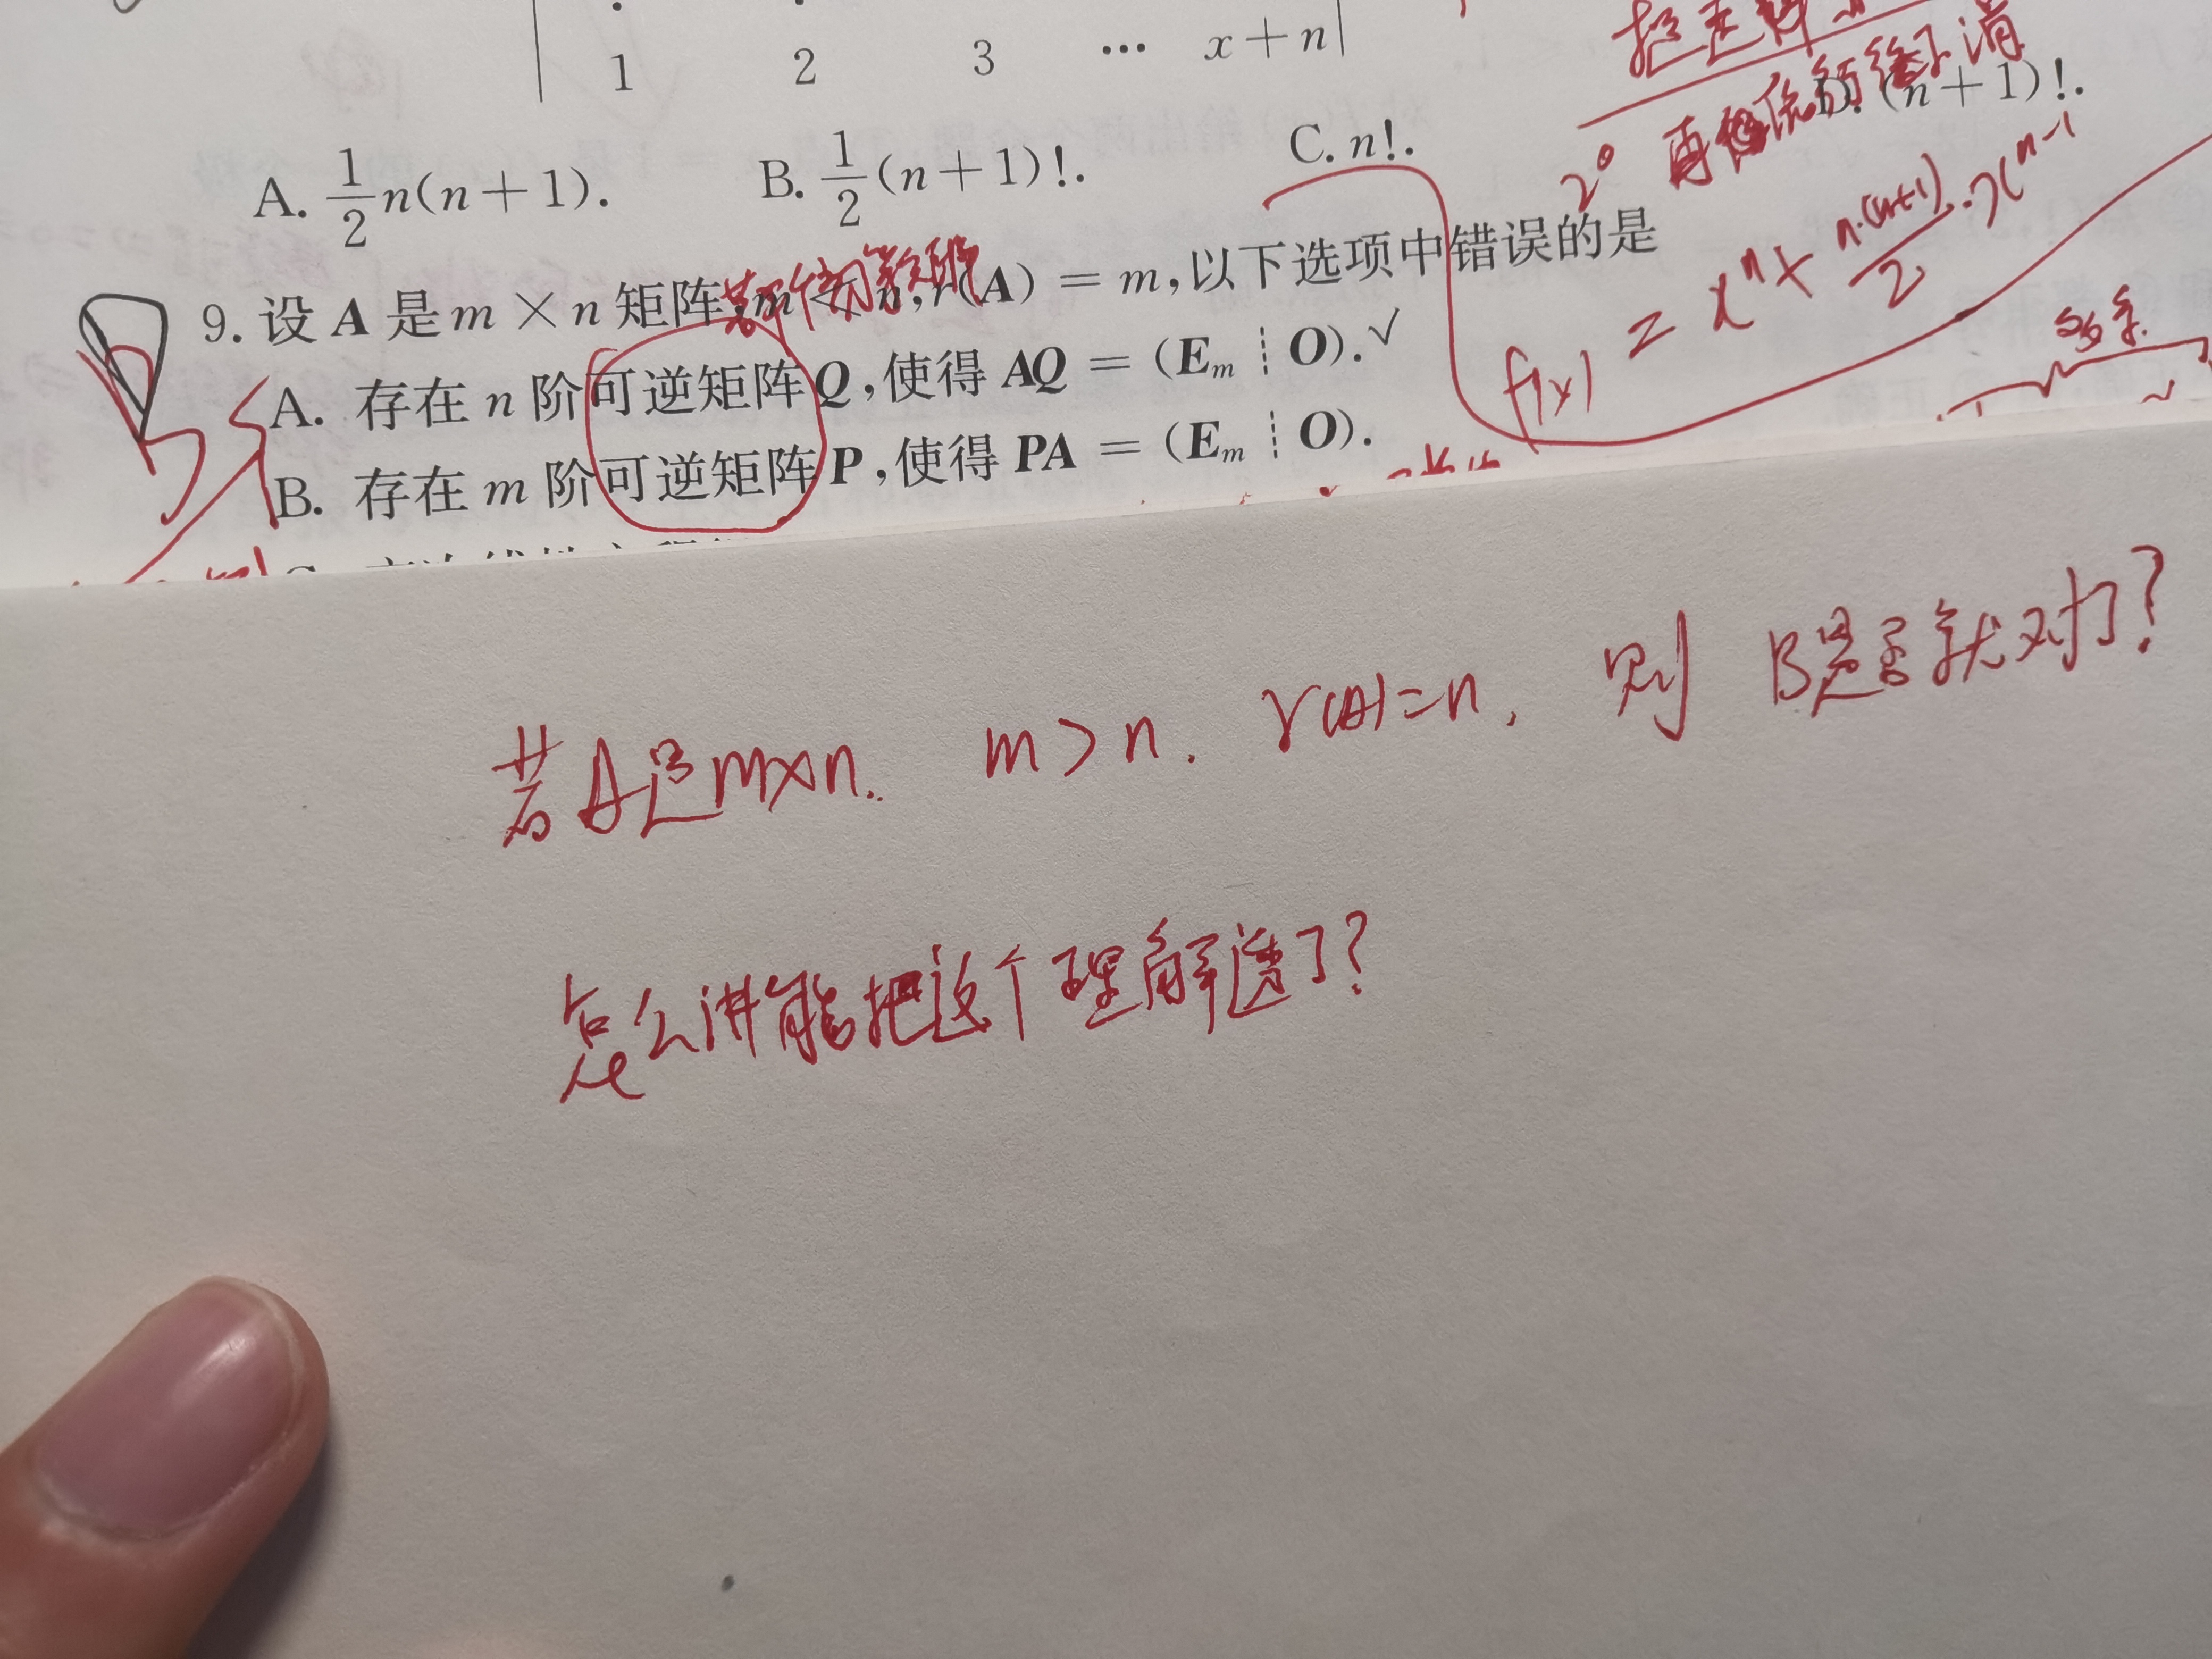 1 2 3 … x+n
A. 1/2 n(n+1). B. 1/2 (n+1)!. C. n!. D. (n+1)!.
2° 再
9. 设 A 是 m×n 矩阵, m<n, r(A) = m, 以下选项中错误的是
A. 存在 n 阶可逆矩阵 Q, 使得 AQ = (E_m ┊ O). √
B. 存在 m 阶可逆矩阵 P, 使得 PA = (E_m ┊ O).
f(x) = x^n + n·(n+1)/2 · x^{n-1}
若A是m×n. m>n. r(A)=n. 则 B是否就对了?
怎么讲能把这个理解透了?